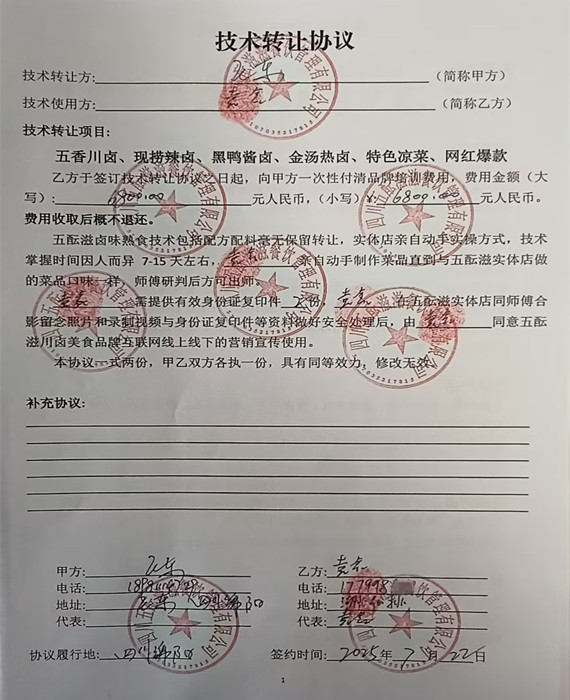 技术转让协议
技术转让方: （简称甲方）
技术使用方: （简称乙方）
技术转让项目:
五香川卤、现捞辣卤、黑鸭酱卤、金汤热卤、特色凉菜、网红爆款
乙方于签订技术转让协议之日起，向甲方一次性付清品牌培训费用，费用金额（大
写）: 6800.00 元人民币，（小写）¥: 6800.00 元人民币。
费用收取后概不退还。
五酝滋卤味熟食技术包括配方配料毫无保留转让，实体店亲自动手实操方式，技术
掌握时间因人而异 7-15 天左右， 亲自动手制作菜品直到与五酝滋实体店做
的菜品口味一样，师傅研判后方可出师。
需提供有效身份证复印件 份， 在五酝滋实体店同师傅合
影留念照片和录制视频与身份证复印件等资料做好安全处理后，由 同意五酝
滋川卤美食品牌互联网线上线下的营销宣传使用。
本协议一式两份，甲乙双方各执一份，具有同等效力，修改无效。
补充协议:
甲方: 乙方:
电话: 电话: 177998
地址: 地址:
代表: 代表:
协议履行地: 四川绵阳 签约时间: 2025年7月22日
1